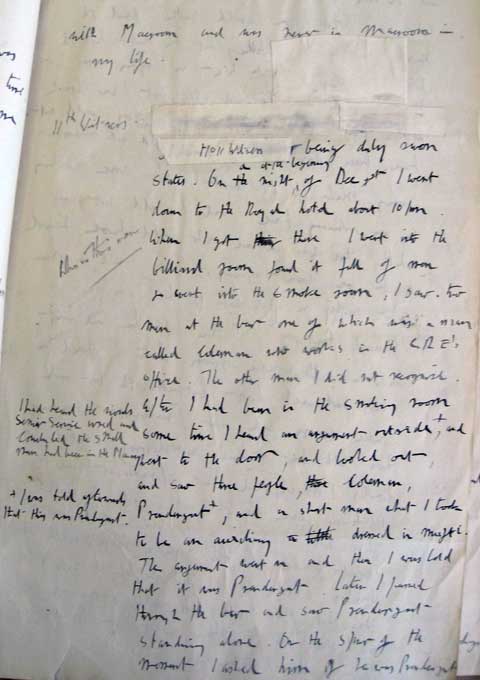 with Macroom and was never in Macroom in
my life.
11th Witness.
Holl Wilson being duly sworn
states. On the night of Dec 9th I went
at the beginning
down to the Royal hotel about 10 pm.
When I got there I went into the
billiard room found it full of men
so went into the smoke room, I saw two
men at the bar one of which was a man
called Coleman who works in the C.R.E's
office. The other man I did not recognise.
Who is this man
After I had been in the smoking room
some time I heard an argument outside +, and
went to the door, and looked out,
and saw three people, Coleman,
Prendergast +, and a short man what I took
to be an auxiliary dressed in mufti.
The argument went on and then I was told
that it was Prendergast. Later I passed
through the bar and saw Prendergast
standing alone. On the spur of the
moment I asked him if he was Prendergast
I had heard the words
Senior Service used and
concluded the small
man had been in the Navy
+ I was told afterwards
that this was Prendergast.